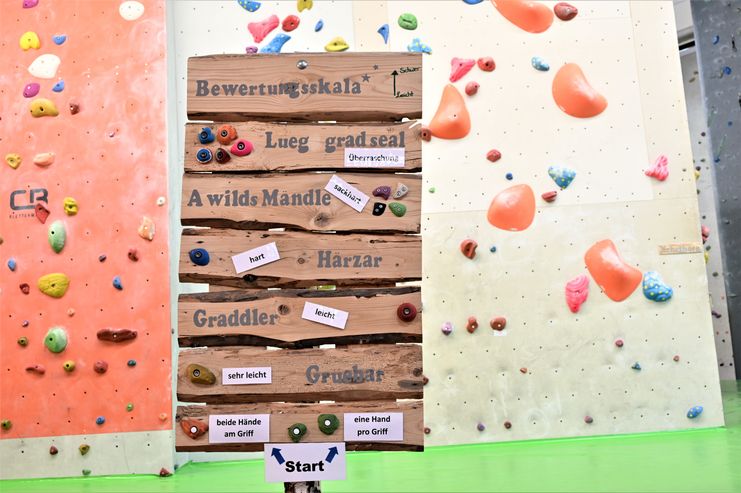 Bewertungsskala**
Schwer
Leicht
Lueg grad seal
Überraschung
A wilds Mändle
sackhart
hart
Härzar
Graddler
leicht
sehr leicht
Gruebar
beide Hände
am Griff
eine Hand
pro Griff
Start
CB